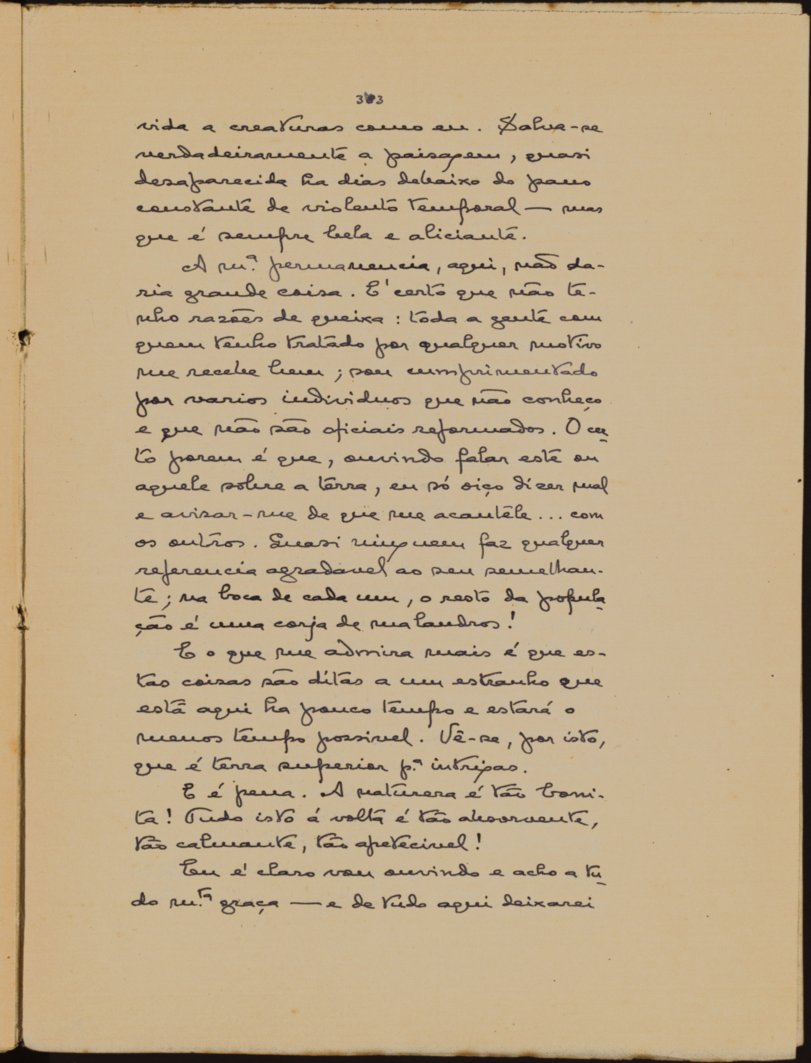 vida a creaturas como eu. Salva-se
verdadeiramente a paisagem, quasi
desaparecida ha dias debaixo do pano
constante de violento temporal — mas
que é sempre bela e aliciante.
A m.ª permanencia, aqui, não da-
ria grande coisa. E' certo que não te-
nho razões de queixa: toda a gente com
quem tenho tratado por qualquer motivo
me recebe bem; sou cumprimentado
por varios individuos que não conheço
e que não são oficiais reformados. O cer-
to porem é que, ouvindo falar este ou
aquele sobre a terra, eu só oiço dizer mal
e avisar-me de que me acautéle... com
os outros. Quasi ninguem faz qualquer
referencia agradavel ao seu semelhan-
te; na boca de cada um, o resto da popula-
ção é uma corja de malandros!
E o que me admira mais é que es-
tas coisas são ditas a um estranho que
está aqui ha pouco tempo e estará o
menos tempo possivel. Vê-se, por isto,
que é terra superior p.ª intrigas.
E é pena. A natureza é tão boni-
ta! Tudo isto á volta é tão absorvente,
tão calmante, tão apetecivel!
Eu é claro vou ouvindo e acho a tu-
do m.ta graça — e de tudo aqui deixarei